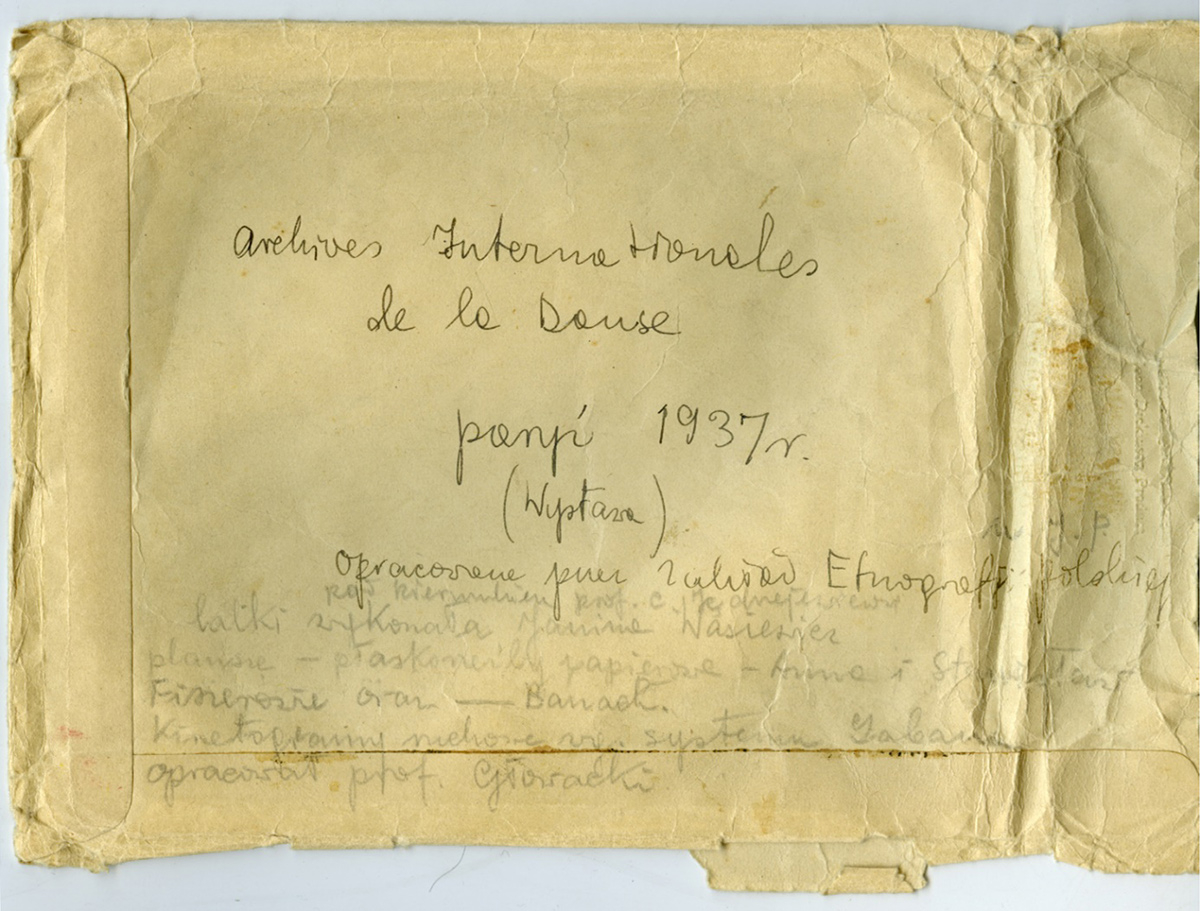 Archives Internationales
de la Danse
paryż 1937 r.
(Wystawa)
u J. P.
Opracowane przez Zakład Etnografji Polskiej
pod kierunkiem prof. C.
lalki wykonała Janina
plansze – płaskorzeźby papierowe – Anna i Stanisław
Fiszerowie oraz — Banach.
Kinetogramy ruchowe wg. systemu Labana
opracował prof. Głowacki